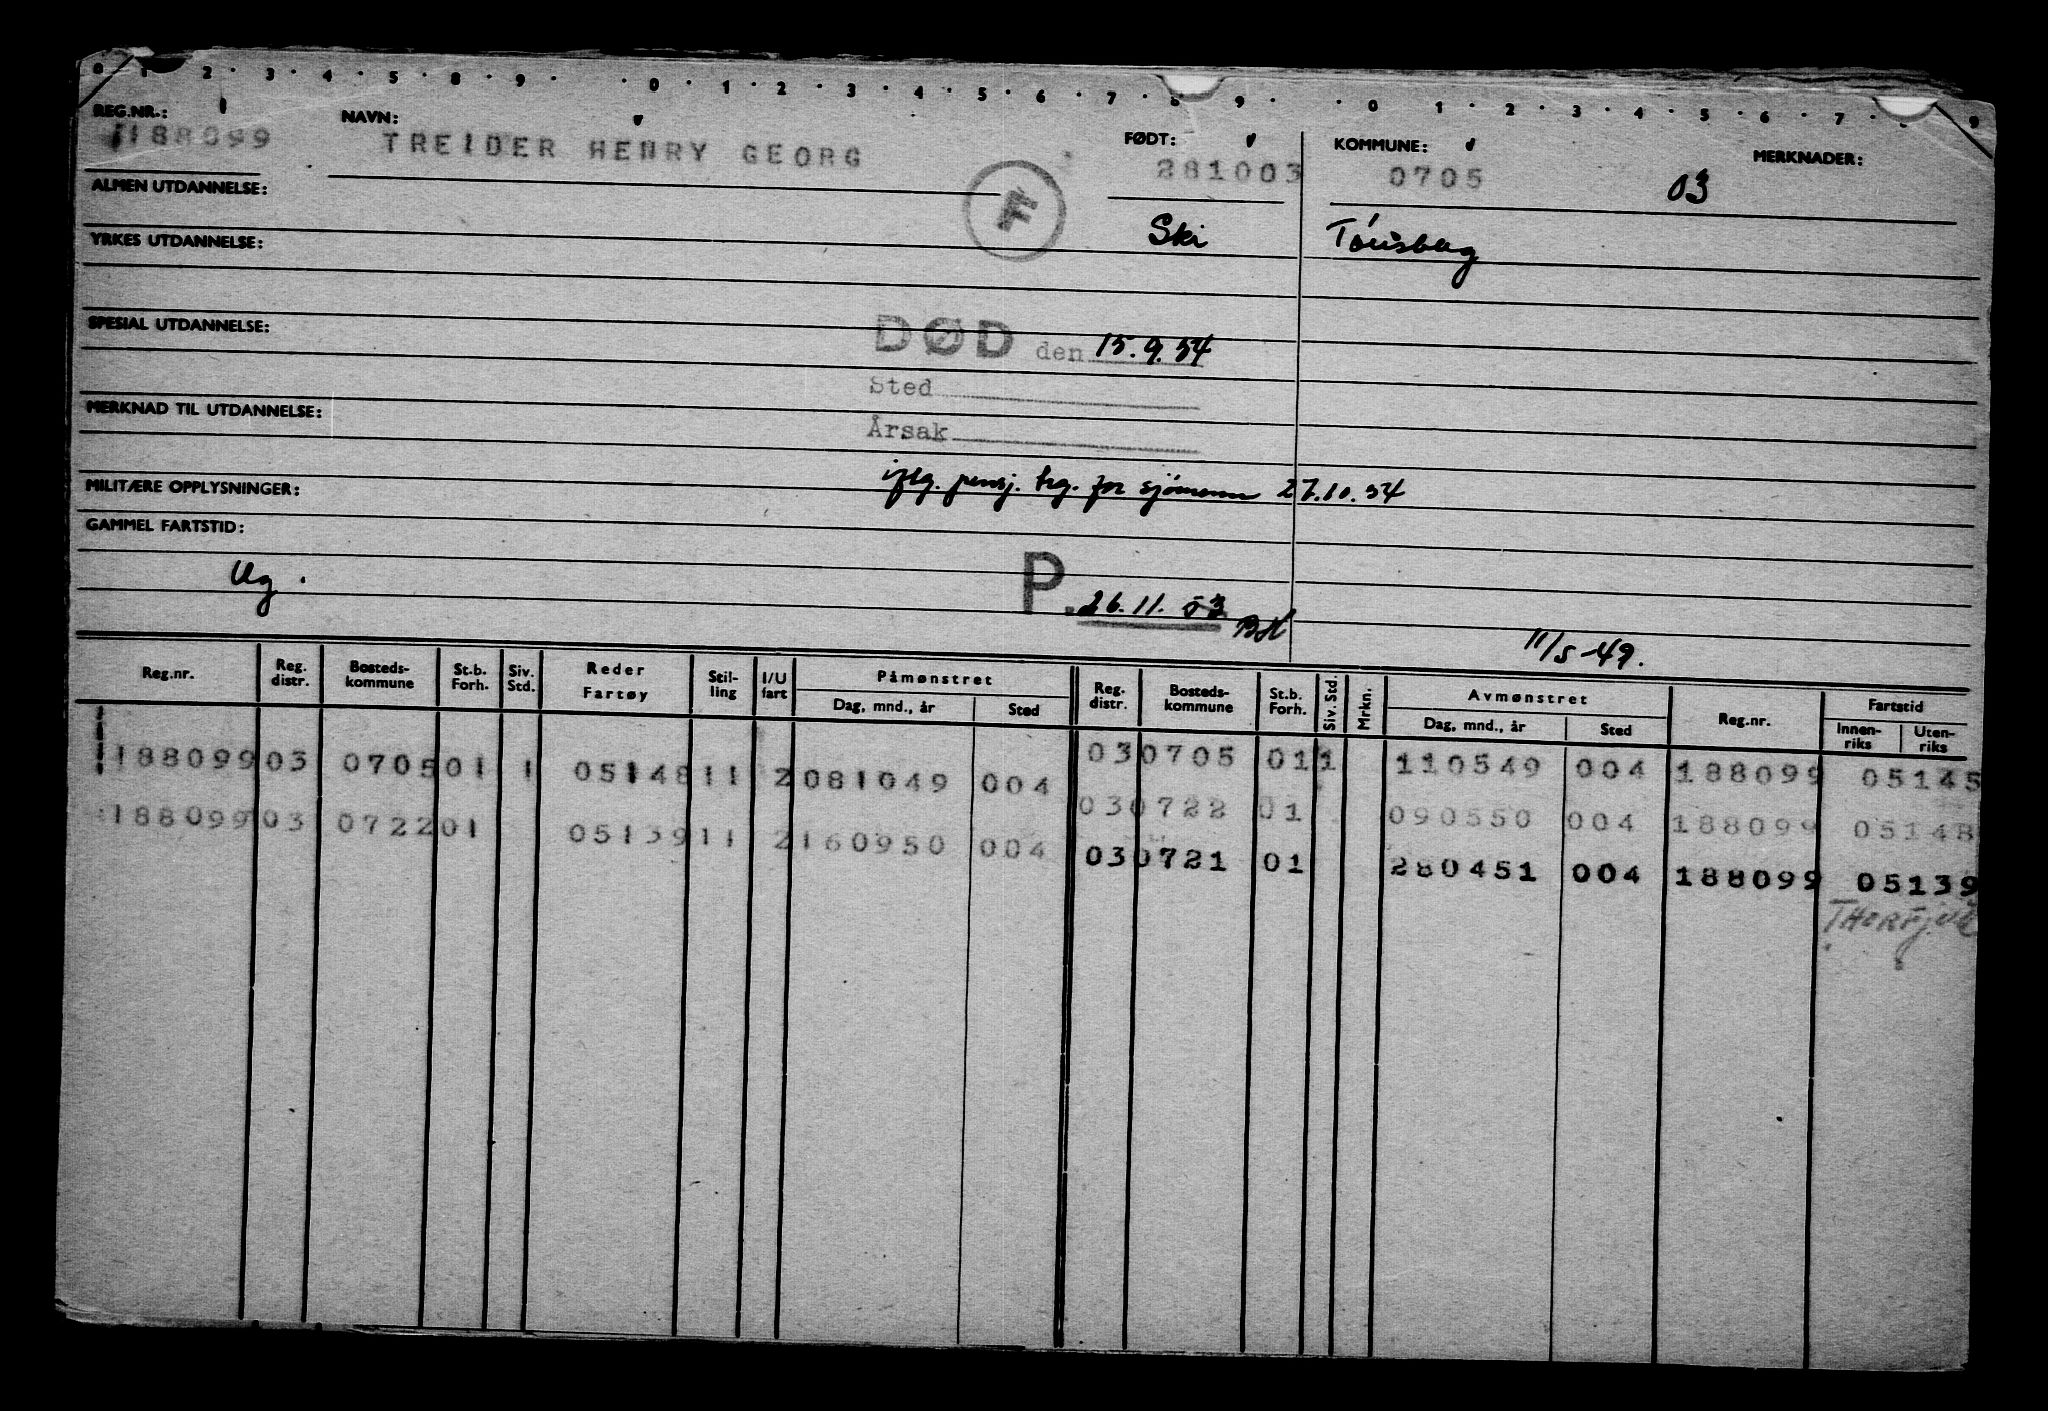 0 1 2 3 4 5 8 9 0 1 2 3 4 5 6 7 8 9 0 1 2 3 4 5 6 7 8 9
REG.NR.: NAVN: FØDT: KOMMUNE: MERKNADER:
188099 TREIDER HENRY GEORG 281003 0705 03
ALMEN UTDANNELSE: F
Ski Tønsberg
YRKES UTDANNELSE:
SPESIAL UTDANNELSE:
DØD den 15.9.54
Sted
MERKNAD TIL UTDANNELSE:
Årsak
iflg. pensj. trg. for sjømenn 27.10.54
MILITÆRE OPPLYSNINGER:
GAMMEL FARTSTID:
Ug.
P. 26.11.53 BH
11/5-49.
Reg.nr. Reg. distr. Bosteds-kommune St.b. Forh. Siv. Std. Reder Fartøy Stil-ling I/U fart Påmønstret Dag, mnd., år Sted Reg. distr. Bosteds-kommune St.b. Forh. Siv. Std. Mrkn. Avmønstret Dag, mnd., år Sted Reg.nr. Fartstid Innen-riks Uten-riks
030705 011 110549 004 188099 05145
188099 03 0705 01 1 05148 11 2 081049 004
030722 01 090550 004 188099 05148
188099 03 0722 01 05139 11 2 160950 004
030721 01 280451 004 188099 05139